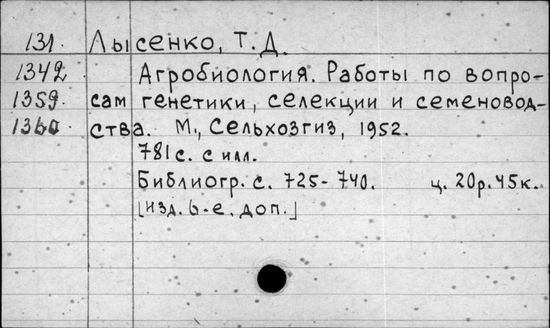 131. Лысенко, Т.Д.
1342 Агробиология. Работы по вопро-
1359 сам генетики, селекции и семеновод-
1360 ства. М., Сельхозгиз, 1952.
781 с. с илл.
Библиогр. с. 725-740. ц. 20р.45к.
[изд. 6-е. доп.]